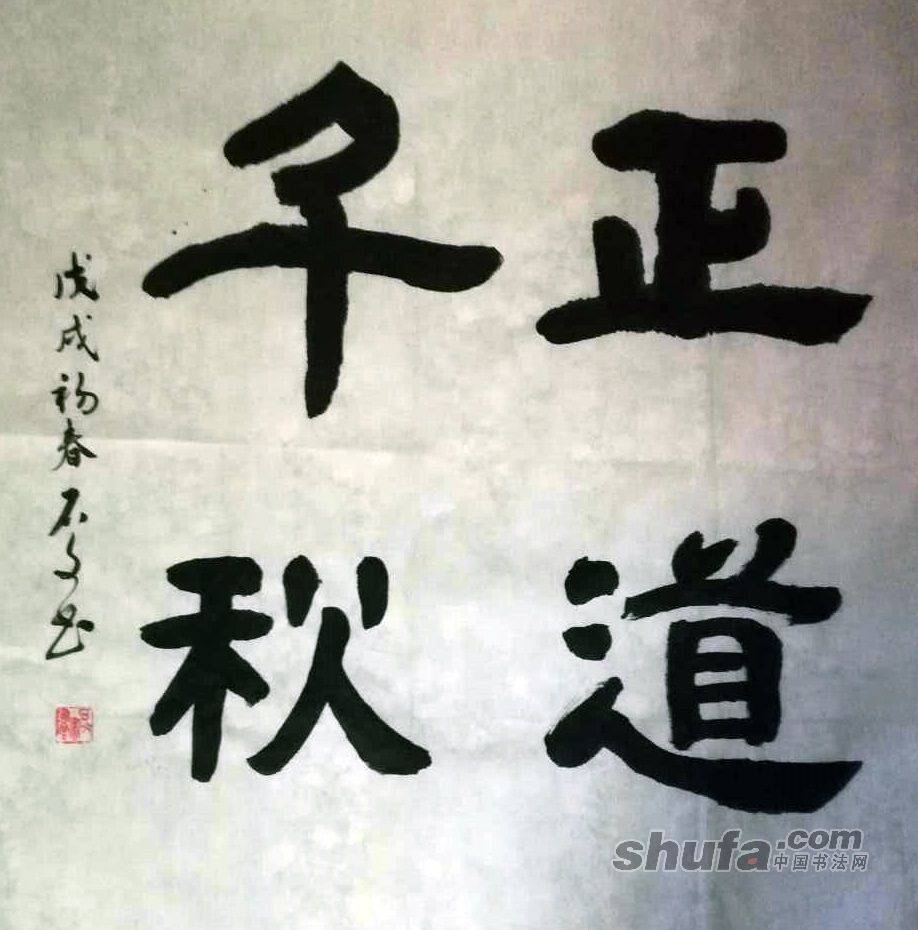 正道
千秋
戊戌初春石文书
shufa.com
中国书法网